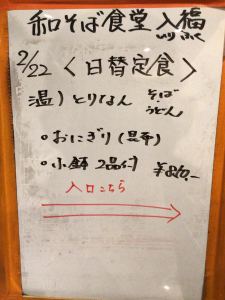 和そば食堂 入福
いりふく
2/22 〈日替定食〉
温) とりなん そば
うどん
・おにぎり (昆布)
・小鉢 2品付 ¥860.-
入口こちら